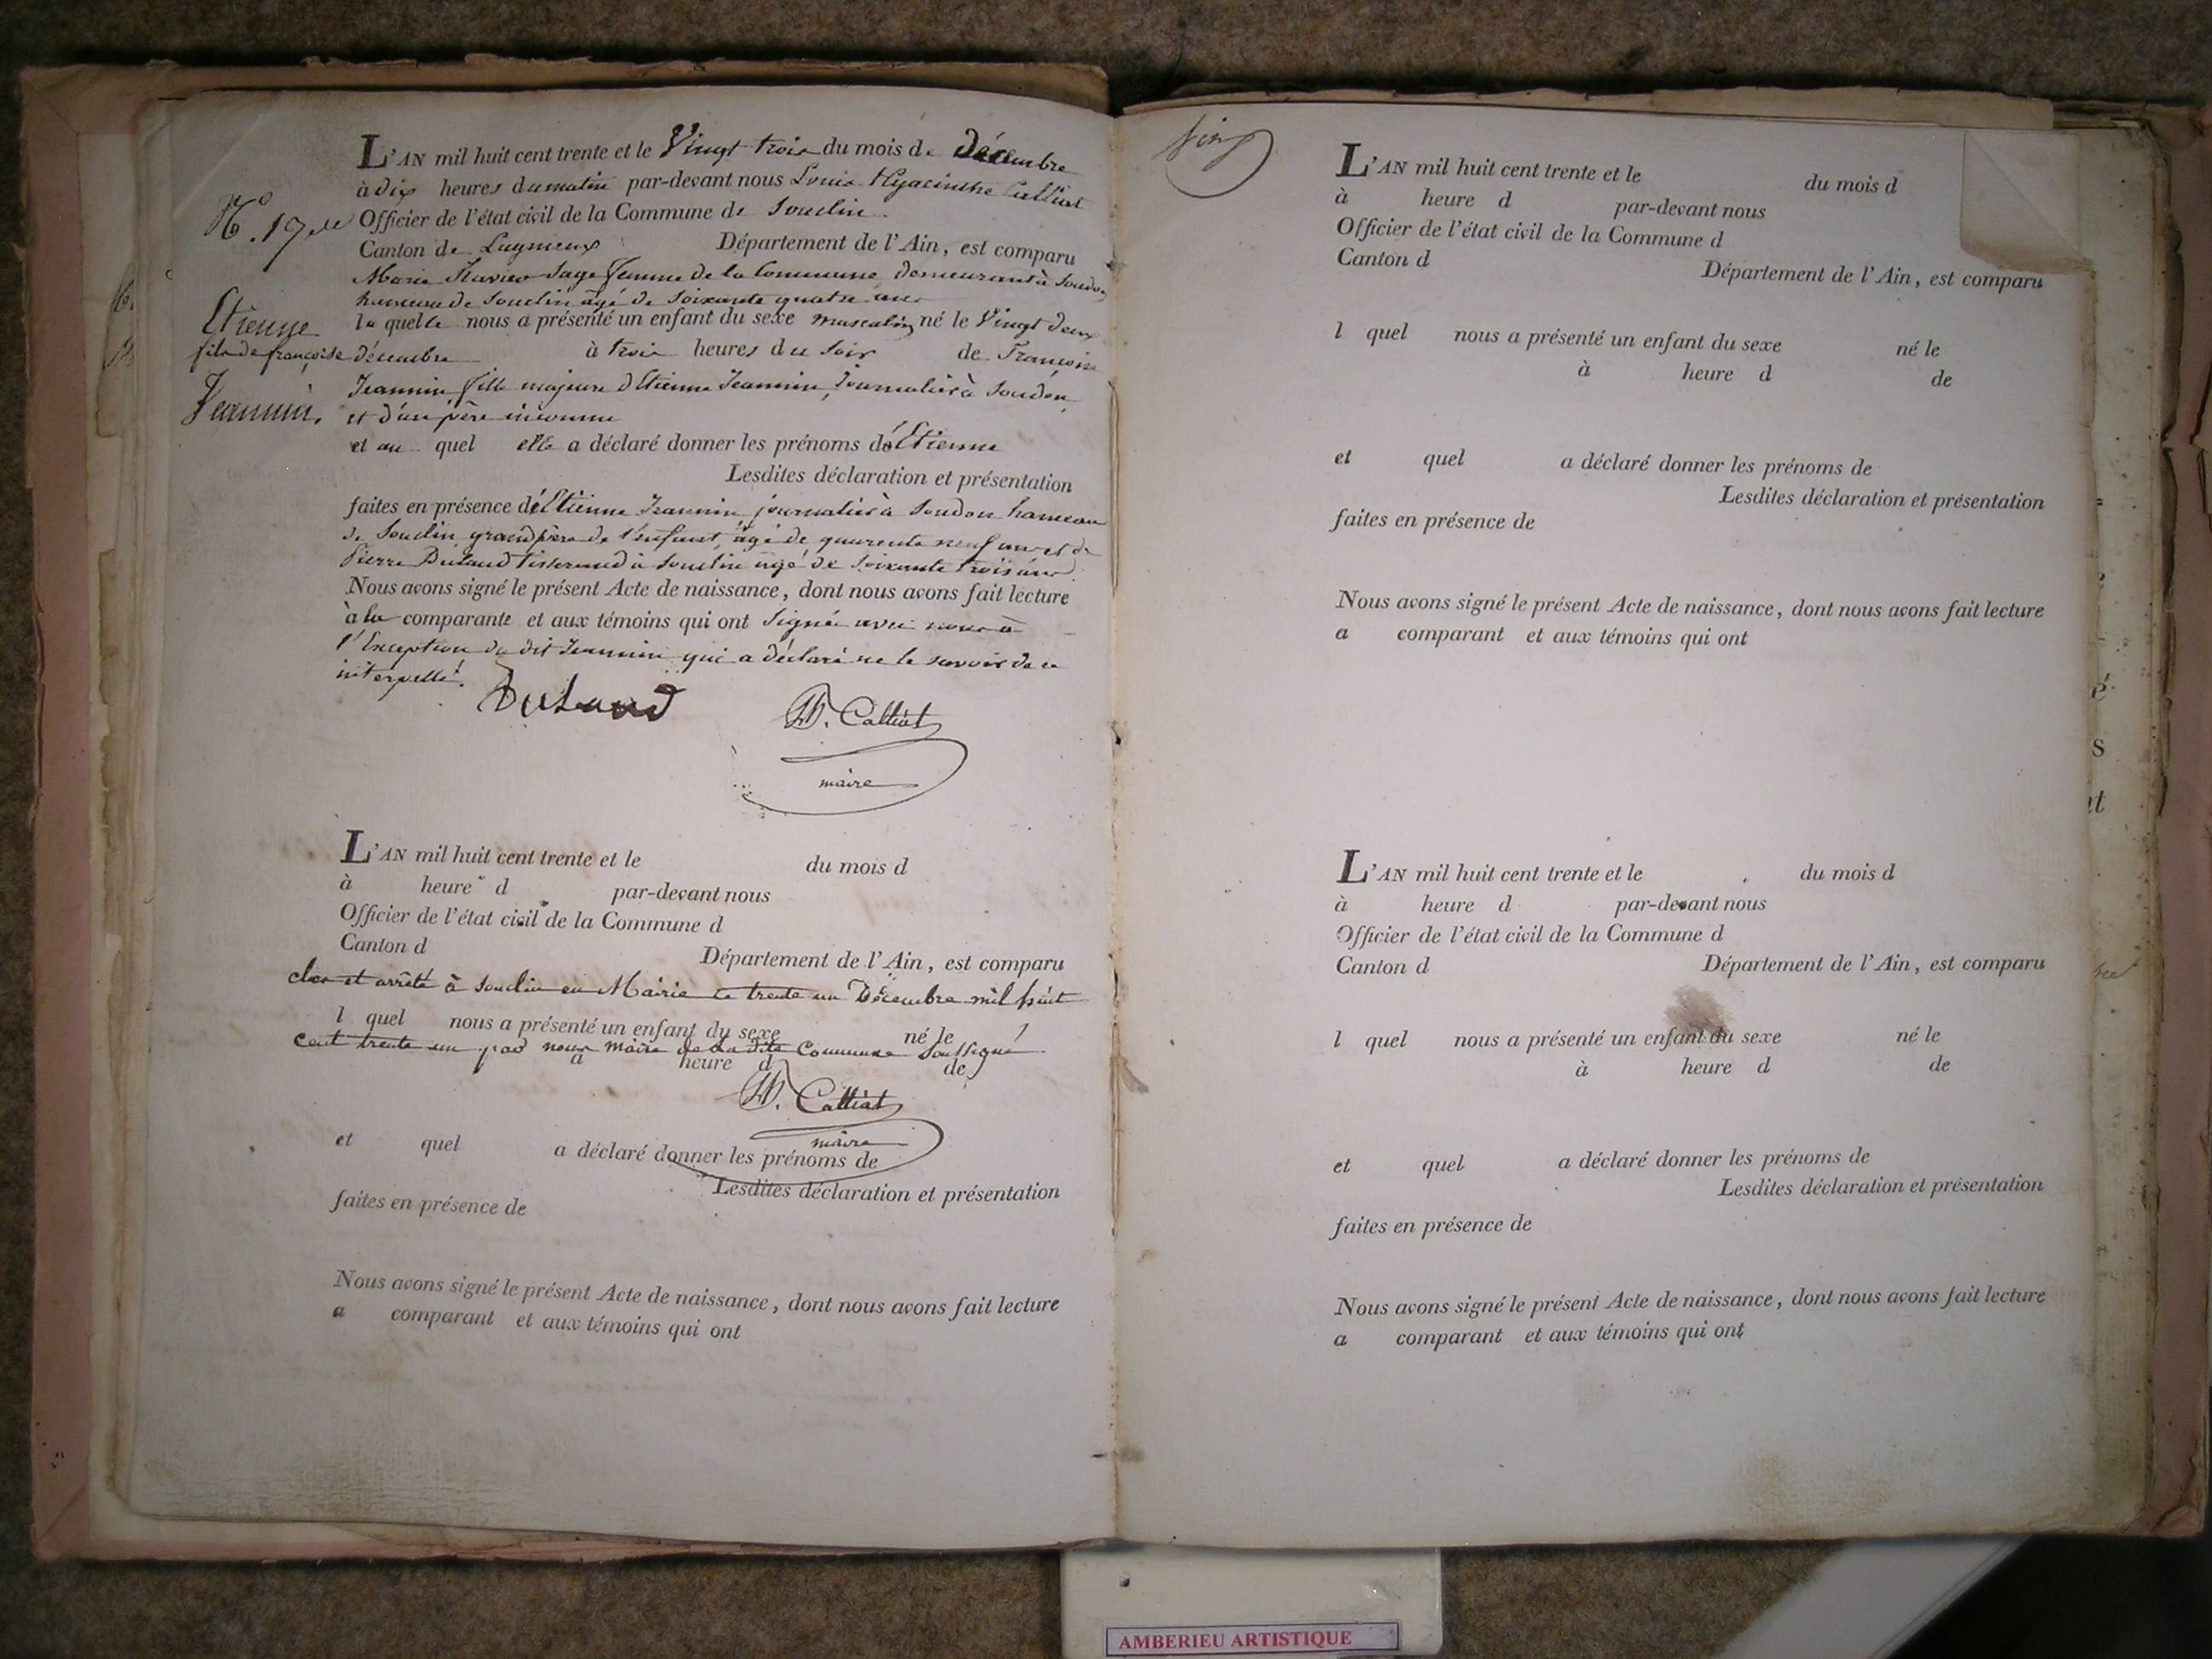 L'AN mil huit cent trente et le Vingt trois du mois de Décembre
à dix heures du matin par-devant nous Louis Hyacinthe Calliat
N.º 19
Officier de l'état civil de la Commune de Souclin
Canton de Lagnieux Département de l'Ain, est comparu
Marie sage femme de la Commune demeurant à Soudon
hameau de Souclin âgé de soixante quatre ans
Etienne
la quelle nous a présenté un enfant du sexe masculin né le Vingt deux
fils de françoise
décembre à trois heures du soir de Françoise
Jeannin.
Jeannin fille majeure d'Etienne Jeannin, journalier à Soudon,
et d'un père inconnu
et au quel elle a déclaré donner les prénoms de Etienne
Lesdites déclaration et présentation
faites en présence de Etienne Jeannin journalier à Soudon hameau
de Souclin grand père de l'enfant, âgé de quarente neuf ans et de
Pierre Dutaud tisserand à Souclin âgé de soixante trois ans.
Nous avons signé le présent Acte de naissance, dont nous avons fait lecture
à la comparante et aux témoins qui ont signé avec nous à
l'Exception du dit Jeannin qui a déclaré ne le savoir de ce
interpellé.
Dutaud
H. Calliat
maire
L'AN mil huit cent trente et le du mois d
à heure d par-devant nous
Officier de l'état civil de la Commune d
Canton d Département de l'Ain, est comparu
clos et arrêté à Souclin en Mairie le trente un Décembre mil huit
l quel nous a présenté un enfant du sexe né le
cent trente un par nous maire de la dite Commune soussigné
à heure d de
H. Calliat
maire
et quel a déclaré donner les prénoms de
Lesdites déclaration et présentation
faites en présence de
Nous avons signé le présent Acte de naissance, dont nous avons fait lecture
a comparant et aux témoins qui ont
L'AN mil huit cent trente et le du mois d
à heure d par-devant nous
Officier de l'état civil de la Commune d
Canton d Département de l'Ain, est comparu
l quel nous a présenté un enfant du sexe né le
à heure d de
et quel a déclaré donner les prénoms de
Lesdites déclaration et présentation
faites en présence de
Nous avons signé le présent Acte de naissance, dont nous avons fait lecture
a comparant et aux témoins qui ont
L'AN mil huit cent trente et le du mois d
à heure d par-devant nous
Officier de l'état civil de la Commune d
Canton d Département de l'Ain, est comparu
l quel nous a présenté un enfant du sexe né le
à heure d de
et quel a déclaré donner les prénoms de
Lesdites déclaration et présentation
faites en présence de
Nous avons signé le présent Acte de naissance, dont nous avons fait lecture
a comparant et aux témoins qui ont
AMBERIEU ARTISTIQUE